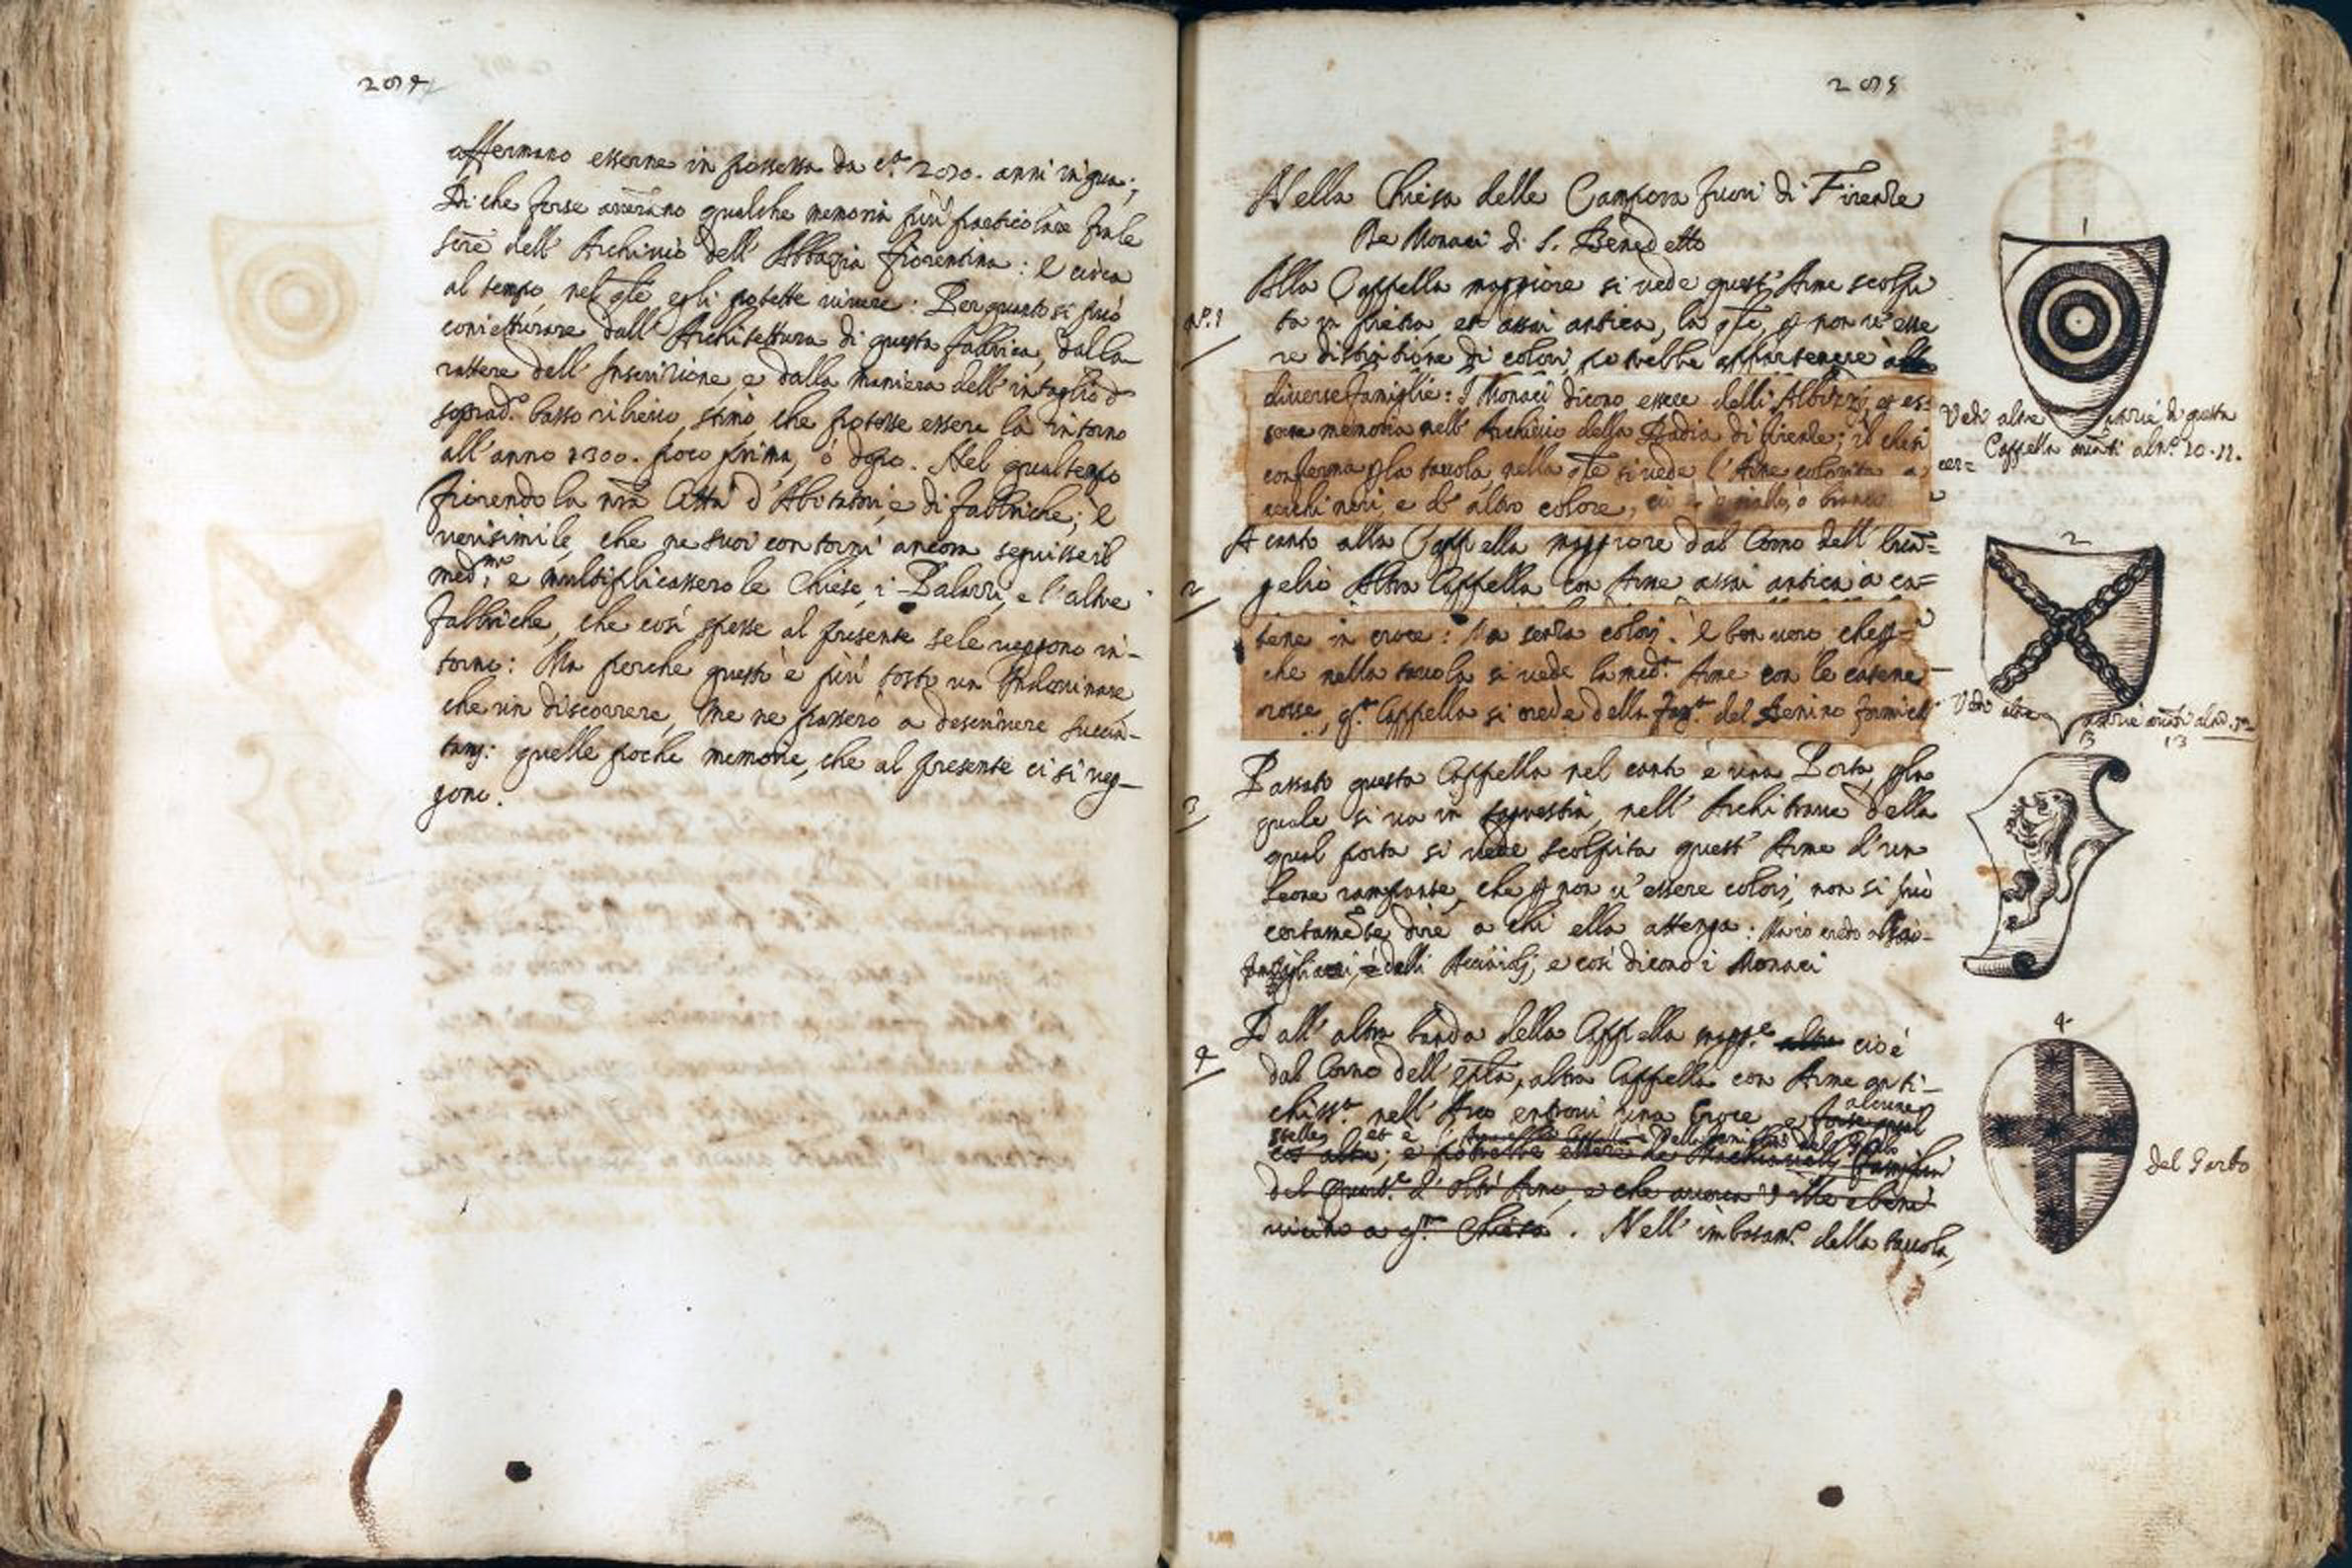 2094
affermano esserne in possesso da ca. 200. anni in qua;
Di che forse averano qualche memoria più particolare
scre dell' Archivio dell' Abbazia fiorentina: E circa
al tempo, nel qle egli potette vivere: Per quanto si può
conietturare dall' Architettura di questa fabbrica, dalla
rattere dell' Inscrizione, e dalla maniera dell' intaglio d
soprad.o basso rilievo, stimo che potesse essere là intorno
all' anno 1300. poco prima, ò dopo. Nel qual tempo
fiorendo la nrã Città d' Abitatori, e di fabbriche; è
verisimile, che ne suoi contorni ancora seguisse il
med.mo e multiplicassero le Chiese, i Palazzi, e l'altre
fabbriche, che così spesse al presente se le veggono in-
torno: Ma perche questo è più tosto un Indovinare
che un discorrere, me ne passerò a descrivere succin-
tam: quelle poche memorie, che al presente ci si veg-
gono.
2095
Nella Chiesa delle Campora fuori di Firenze
De Monaci di S. Benedetto
1
N.o 1
Alla Cappella maggiore si vede quest' Arme scolpi
ta in pietra, et assai antica, la qle, p non v'esse
re distintione di colori, potrebbe appartenere
diverse famiglie: I Monaci dicono essere delli Albizzi, et es-
serne memoria nell' Archivio della Badia di firenze; il che si
conferma p la tavola, nella qle si vede l' Arme colorita a cer=
cerchi neri, e d' altro colore, ò giallo, ò bianco
Vedi altre
di questa
Cappella avanti al n.o 10. 11.
2
2
A canto alla Cappella maggiore dal Corno dell' Evan=
gelio Altra Cappella con Arme assai antica a ca=
tene in croce: Ma senza colori. È ben vero, che
che nella tavola si vede la med.a Arme con le catene
rosse, q.a Cappella si crede della del
Vedi altre
avanti al
13
3
3
Passato questa Cappella nel canto è una Porta, p la
quale si va in sagrestia, nell' Architrave della
qual porta si vede scolpita quest' Arme d' un
Leone rampante, che p non v' essere colori, non si può
certamẽte dire a chi ella attenga:
delli Acciaioli, e così dicono i Monaci
4
4
Dall' altra banda della Cappella magg.e cioè
dal Corno dell' Epla, altra Cappella con Arme anti-
chiss.a nell' Arco entrovi una Croce e alcune
stelle, et è della famiglia del Garbo
del Garbo
del Quart.e d' oltr' Arno, e che
vicino a q.a Chiesa. Nell' imbasam.o della tavola,